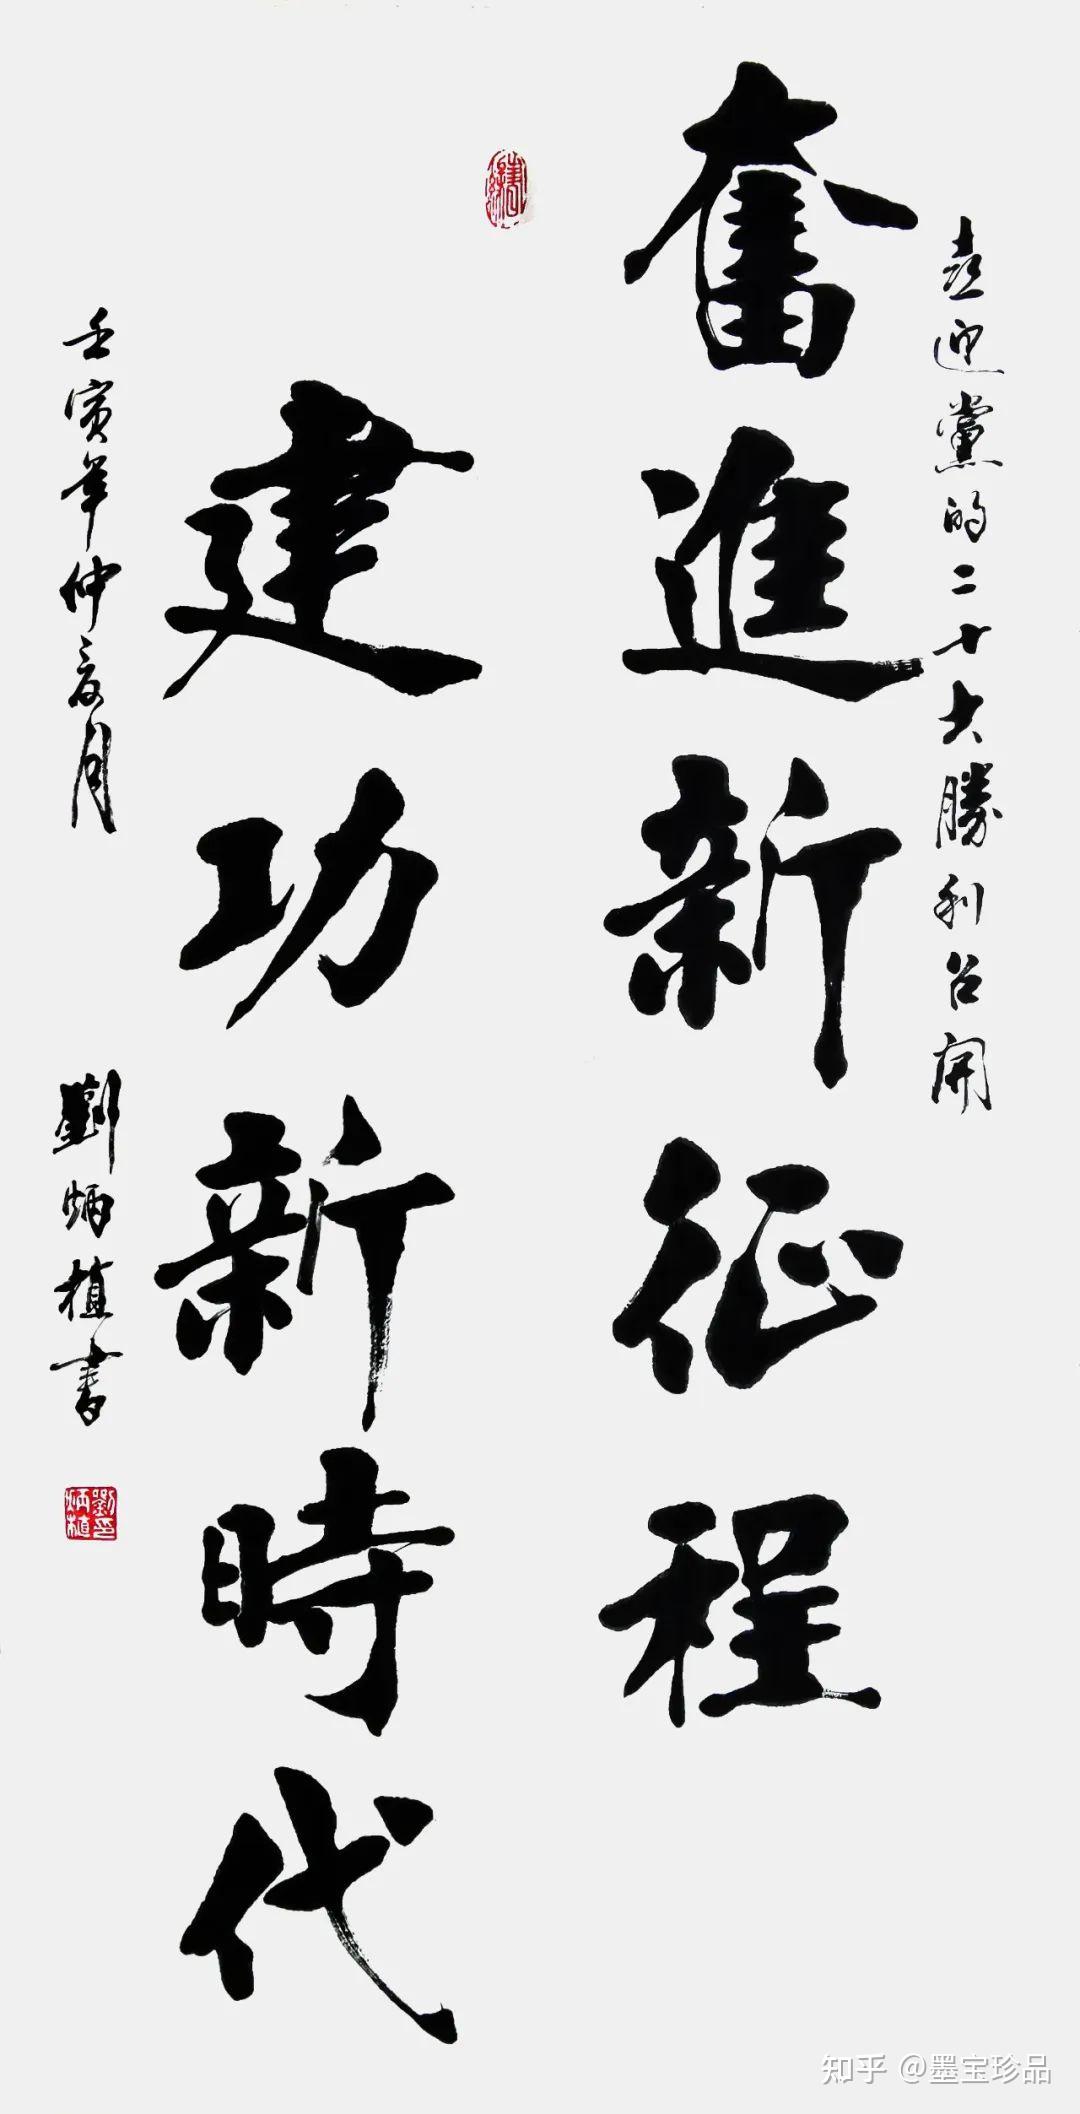 喜迎黨的二十大勝利召開
奮進新征程
建功新時代
壬寅年仲夏月
劉炳植書
劉炳植印
知乎 @墨宝珍品